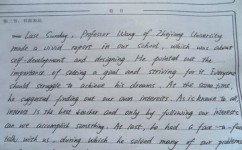 Last Sunday, Professor Wang of Zhejiang University
made a vivid report in our school, which was about
self-development and designing. He pointed out the
importance of setting a goal and striving for it. Everyone
should struggle to achieve his dreams. At the same time,
he suggested finding out our own interests. As is known to all,
interest is the best teacher and only by following our interests
can we accomplish something. At last, he had a face-to-face
talk with us, during which he solved many of our problems